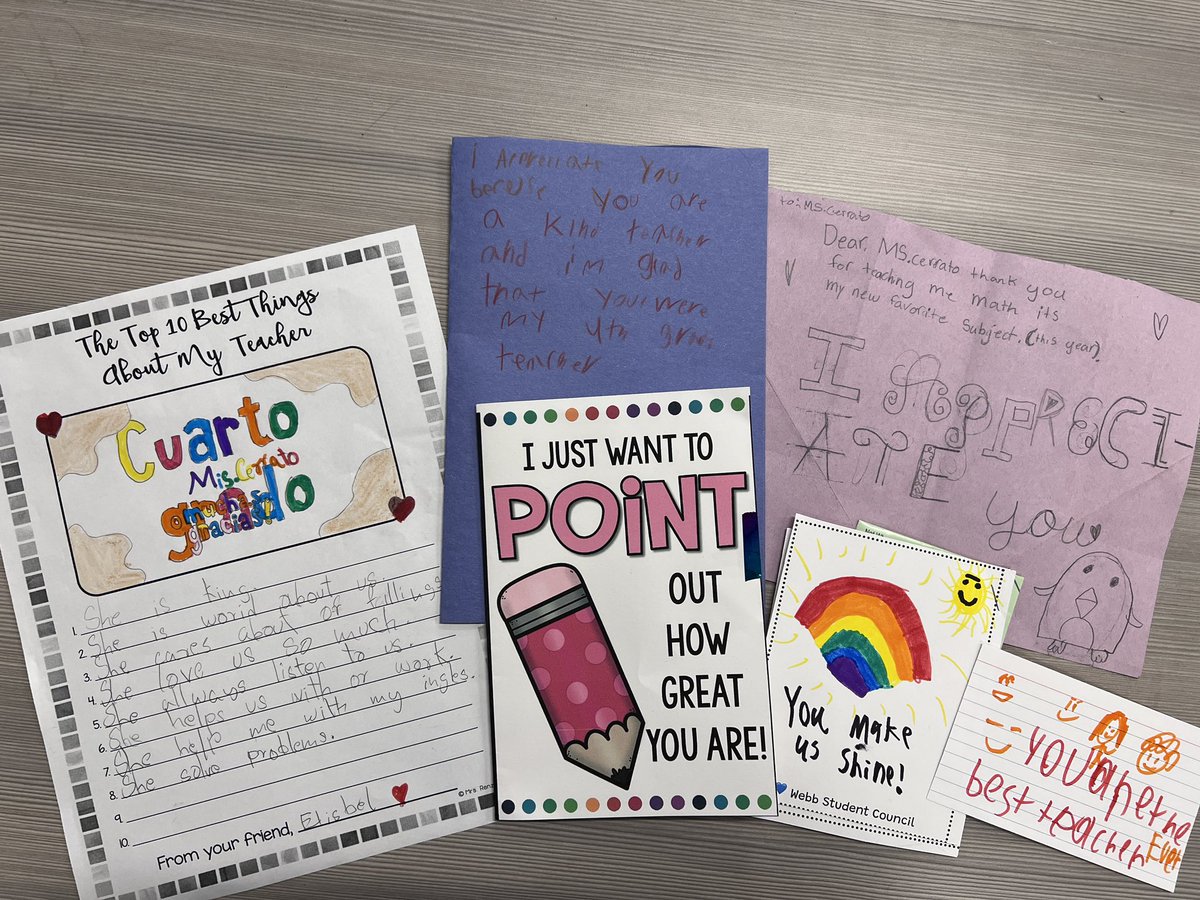 The Top 10 Best Things
About My Teacher
Cuarto
Mis.Cerrato
muchas
gracias!
grado
1. She is king about us.
2. She is world about us.
3. She cares about or fillings
4. She love us so much.
5. She always listen to us.
6. She helps us with or work.
7. She help me with my ingles.
8. She solve problems.
9.
10.
From your friend, Elisbel
© Mrs. Ren
i Appreciate You
becuse you are
a kind teacher
and i'm glad
that you were
my 4th grade
teacher
I JUST WANT TO
POINT
OUT
HOW
GREAT
YOU ARE!
to: MS.cerrato
Dear, MS.cerrato thank you
for teaching me math its
my new favorite subject. (this year).
I APPRECI-
ATE
you
You make
us shine!
Webb Student Council
YOU are the
best teacher
Ever